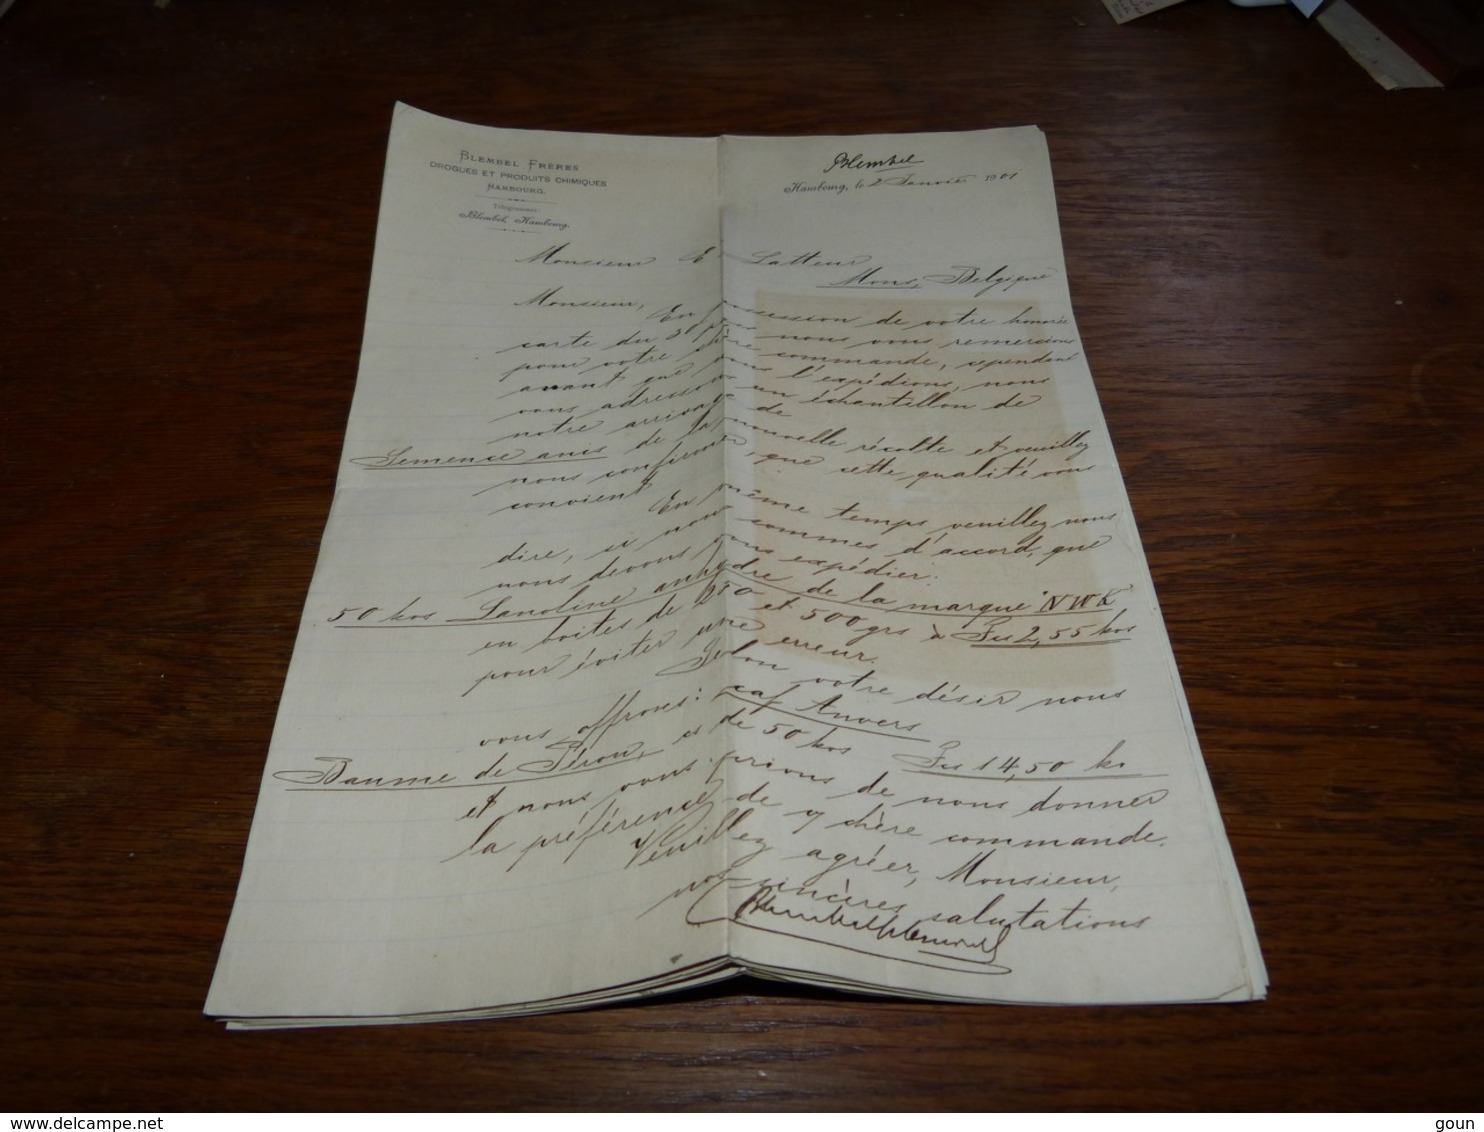 BLEMBEL FRÈRES
DROGUES ET PRODUITS CHIMIQUES
HAMBOURG.
Télégrammes:
Blembel, Hambourg.
Blembel
Hambourg, le 2 Janvier 1901
Monsieur E. Latteur
Mons, Belgique
Monsieur,
En possession de votre honorée
carte du 30 nous vous remercions
pour votre chère commande, cependant
avant que nous l'expédions, nous
vous adressons un échantillon de
notre arrivage de
Semence anis de la nouvelle récolte et veuillez
nous confirmer, que cette qualité vous
convient
En même temps veuillez nous
dire, si nous sommes d'accord, que
nous devons vous expédier:
50 kos Lanoline anhydre de la marque NWK
en boites de 250 et 500 grs à Frs 2,55 kos
pour éviter une erreur.
Selon votre désir nous
vous offrons: caf Anvers
Baume de Pérou, es de 50 kos Frs 14,50 ko
et nous vous prions de nous donner
la préférence de v/ chère commande.
Veuillez agréer, Monsieur,
nos sincères salutations
Blembel frères
delcampe.net
goun